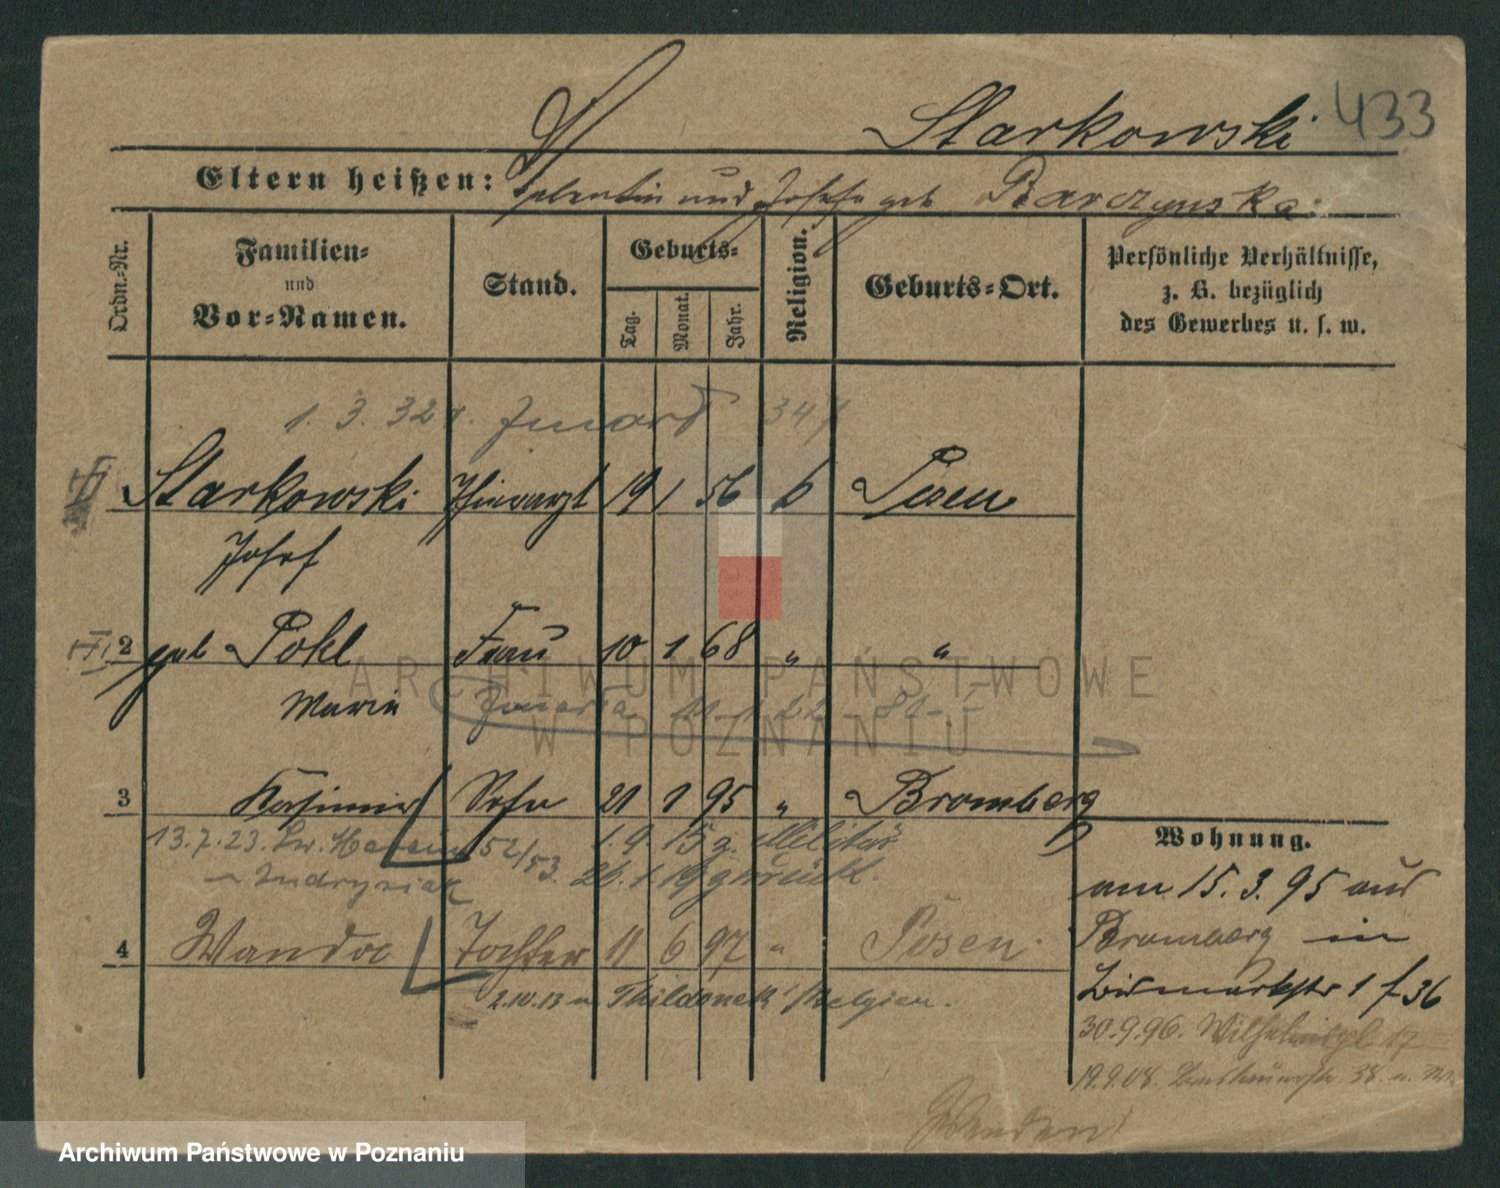 433
Starkowski
Eltern heißen: Valentin und Josefa geb Barczynska
Ordn.=Nr.
Familien=
und
Vor=Namen.
Stand.
Geburts=
Tag.
Monat.
Jahr.
Religion.
Geburts=Ort.
Persönliche Verhältnisse,
z. B. bezüglich
des Gewerbes u. s. w.
1. 3. 32 347
Starkowski Thierarzt 19 1 56 Posen
Josef
2 geb Pohl Frau 10 1 68 " "
Marie
3 Kasimir Sohn 21 1 95 " Bromberg
13.7.23. 52/53. 1.9.15 z. Militär
26.1.19 zurück.
4 Wanda Tochter 11 6 97 " Posen.
2.10.13 n. Thildonck / Belgien.
Wohnung.
am 15.3.95 aus
Bromberg in
Bismarckstr 1
30.9.96. Wilhelmspl 17
19.9.08. 38.
ARCHIWUM PAŃSTWOWE
W POZNANIU
Archiwum Państwowe w Poznaniu